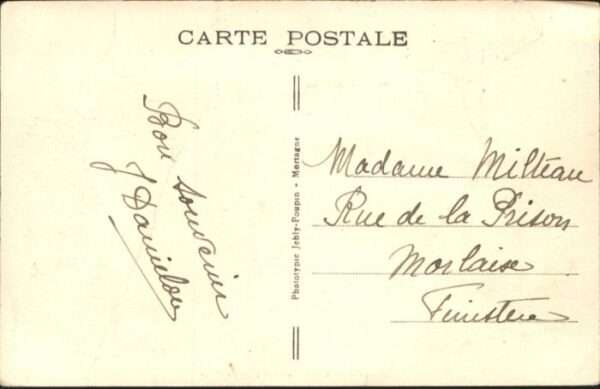 CARTE POSTALE
Bon souvenir
J Danielou
Phototypie Jehly-Poupin - Mortagne
Madame Milteau
Rue de la Prison
Morlaise
Finistère